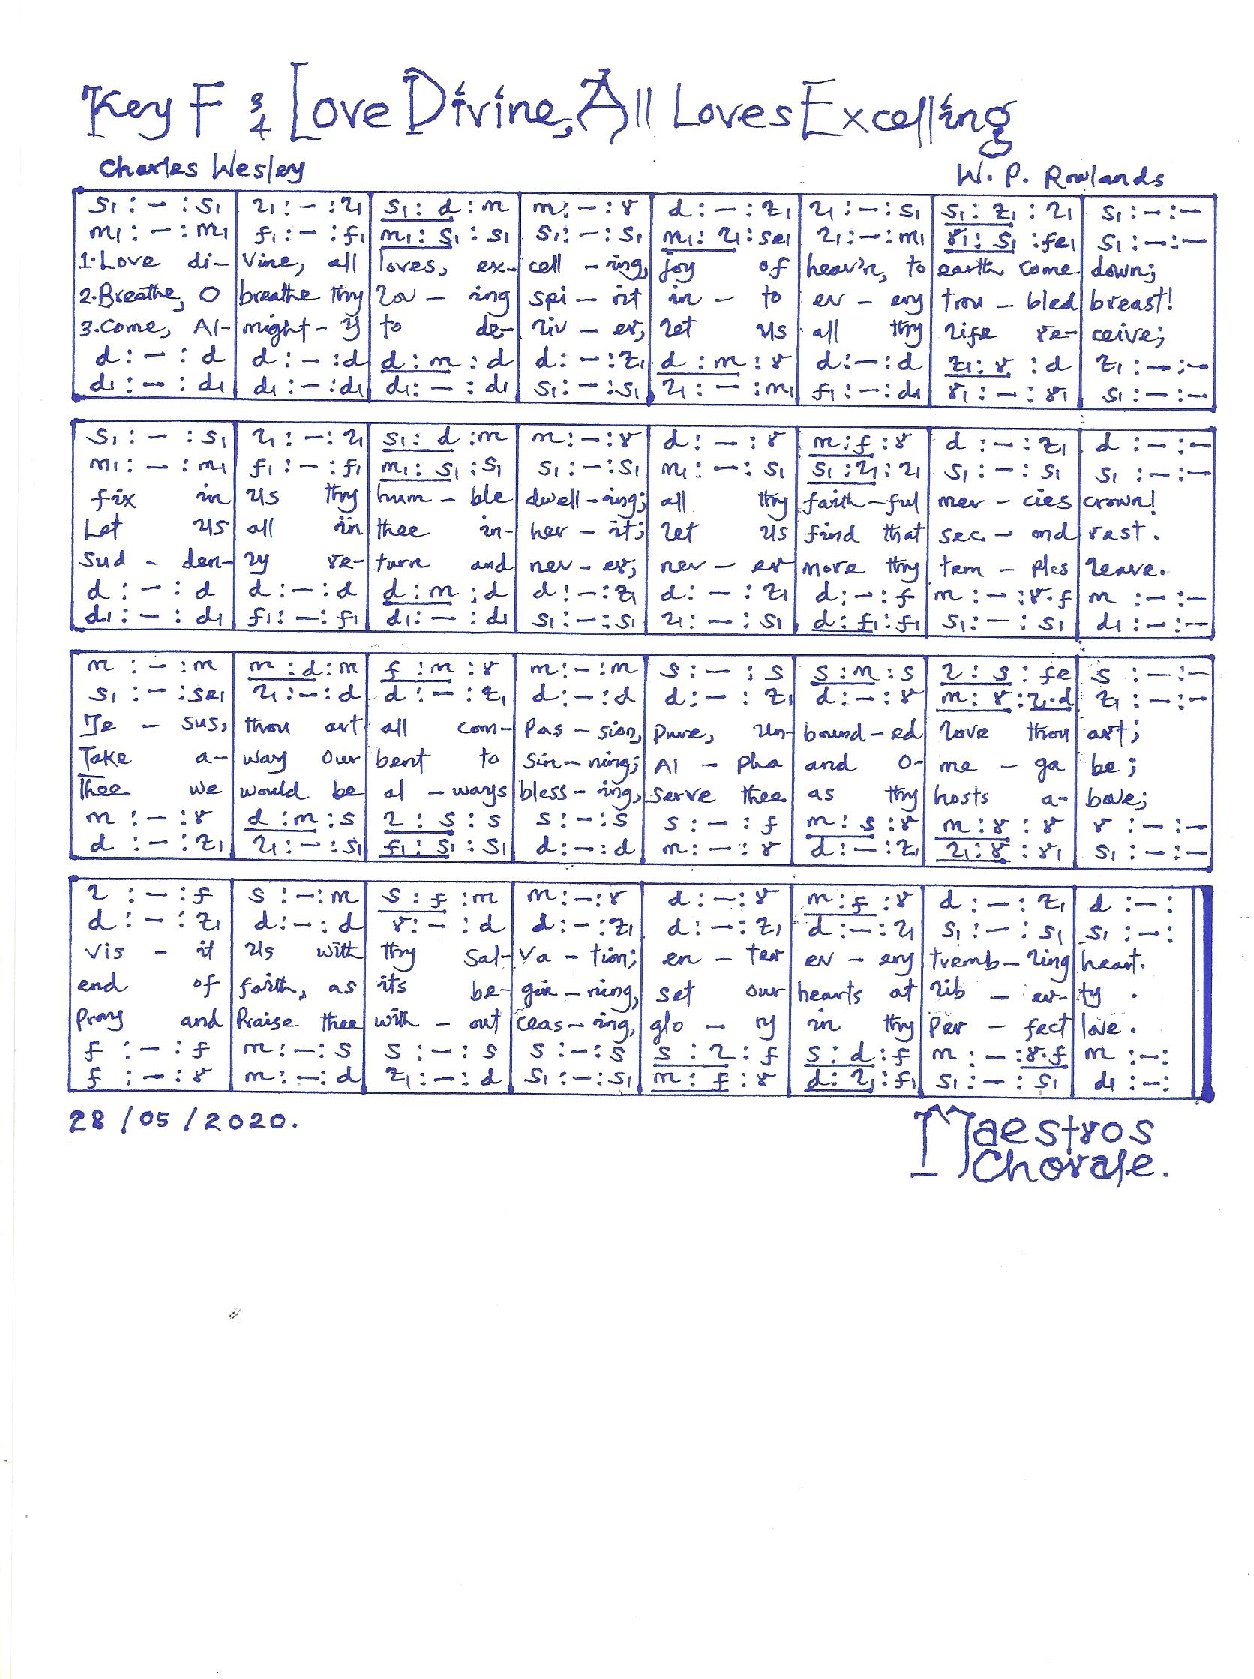 Key F 3/4 Love Divine, All Loves Excelling
Charles Wesley W. P. Rowlands
s₁ : – : s₁ | l₁ : – : l₁ | s₁ : d : m | m : – : r | d : – : t₁ | l₁ : – : s₁ | s₁ : t₁ : l₁ | s₁ : – : –
m₁ : – : m₁ | f₁ : – : f₁ | m₁ : s₁ : s₁ | s₁ : – : s₁ | m₁ : l₁ : se₁ | l₁ : – : m₁ | r₁ : s₁ : fe₁ | s₁ : – : –
1. Love di- | vine, all | loves, ex- | cell - ing, | joy of | heav'n, to | earth come | down;
2. Breathe, O | breathe thy | lov - ing | spi - rit | in - to | ev - ery | trou - bled | breast!
3. Come, Al- | might - y | to de- | liv - er, | let us | all thy | life re- | ceive;
d : – : d | d : – : d | d : m : d | d : – : t₁ | d : m : r | d : – : d | t₁ : r : d | t₁ : – : –
d₁ : – : d₁ | d₁ : – : d₁ | d₁ : – : d₁ | s₁ : – : s₁ | l₁ : – : m₁ | f₁ : – : d₁ | r₁ : – : r₁ | s₁ : – : –
s₁ : – : s₁ | l₁ : – : l₁ | s₁ : d : m | m : – : r | d : – : r | m : f : r | d : – : t₁ | d : – : –
m₁ : – : m₁ | f₁ : – : f₁ | m₁ : s₁ : s₁ | s₁ : – : s₁ | m₁ : – : s₁ | s₁ : l₁ : l₁ | s₁ : – : s₁ | s₁ : – : –
fix in | us thy | hum - ble | dwell - ing; | all thy | faith - ful | mer - cies | crown!
Let us | all in | thee in- | her - it; | let us | find that | sec - ond | rest.
Sud - den- | ly re- | turn and | nev - er, | nev - er | more thy | tem - ples | leave.
d : – : d | d : – : d | d : m : d | d : – : t₁ | d : – : t₁ | d : – : f | m : – : r.f | m : – : –
d₁ : – : d₁ | f₁ : – : f₁ | d₁ : – : d₁ | s₁ : – : s₁ | l₁ : – : s₁ | d : f₁ : f₁ | s₁ : – : s₁ | d₁ : – : –
m : – : m | m : d : m | f : m : r | m : – : m | s : – : s | s : m : s | l : s : fe | s : – : –
s₁ : – : se₁ | l₁ : – : d | d : – : t₁ | d : – : d | d : – : t₁ | d : – : r | m : r : l₁.d | t₁ : – : –
Je - sus, | thou art | all com- | pas - sion, | pure, un- | bound - ed | love thou | art;
Take a- | way our | bent to | sin - ning; | Al - pha | and O- | me - ga | be;
Thee we | would be | al - ways | bless - ing, | Serve thee | as thy | hosts a- | bove;
m : – : r | d : m : s | l : s : s | s : – : s | s : – : f | m : s : r | m : r : r | r : – : –
d : – : t₁ | l₁ : – : s₁ | f₁ : s₁ : s₁ | d : – : d | m : – : r | d : – : t₁ | l₁ : r : r₁ | s₁ : – : –
l : – : f | s : – : m | s : f : m | m : – : r | d : – : r | m : f : r | d : – : t₁ | d : – :
d : – : t₁ | d : – : d | r : – : d | d : – : t₁ | d : – : t₁ | d : – : l₁ | s₁ : – : s₁ | s₁ : – :
vis - it | us with | thy sal- | va - tion; | en - ter | ev - ery | tremb - ling | heart.
end of | faith, as | its be- | gin - ning, | set our | hearts at | lib - er- | ty.
Pray and | Praise thee | with - out | ceas - ing, | glo - ry | in thy | per - fect | love.
f : – : f | m : – : s | s : – : s | s : – : s | s : l : f | s : d : f | m : – : r.f | m : – :
f : – : r | m : – : d | t₁ : – : d | s₁ : – : s₁ | m : f : r | d : l₁ : f₁ | s₁ : – : s₁ | d₁ : – :
28/05/2020.
Maestros
Chorale.